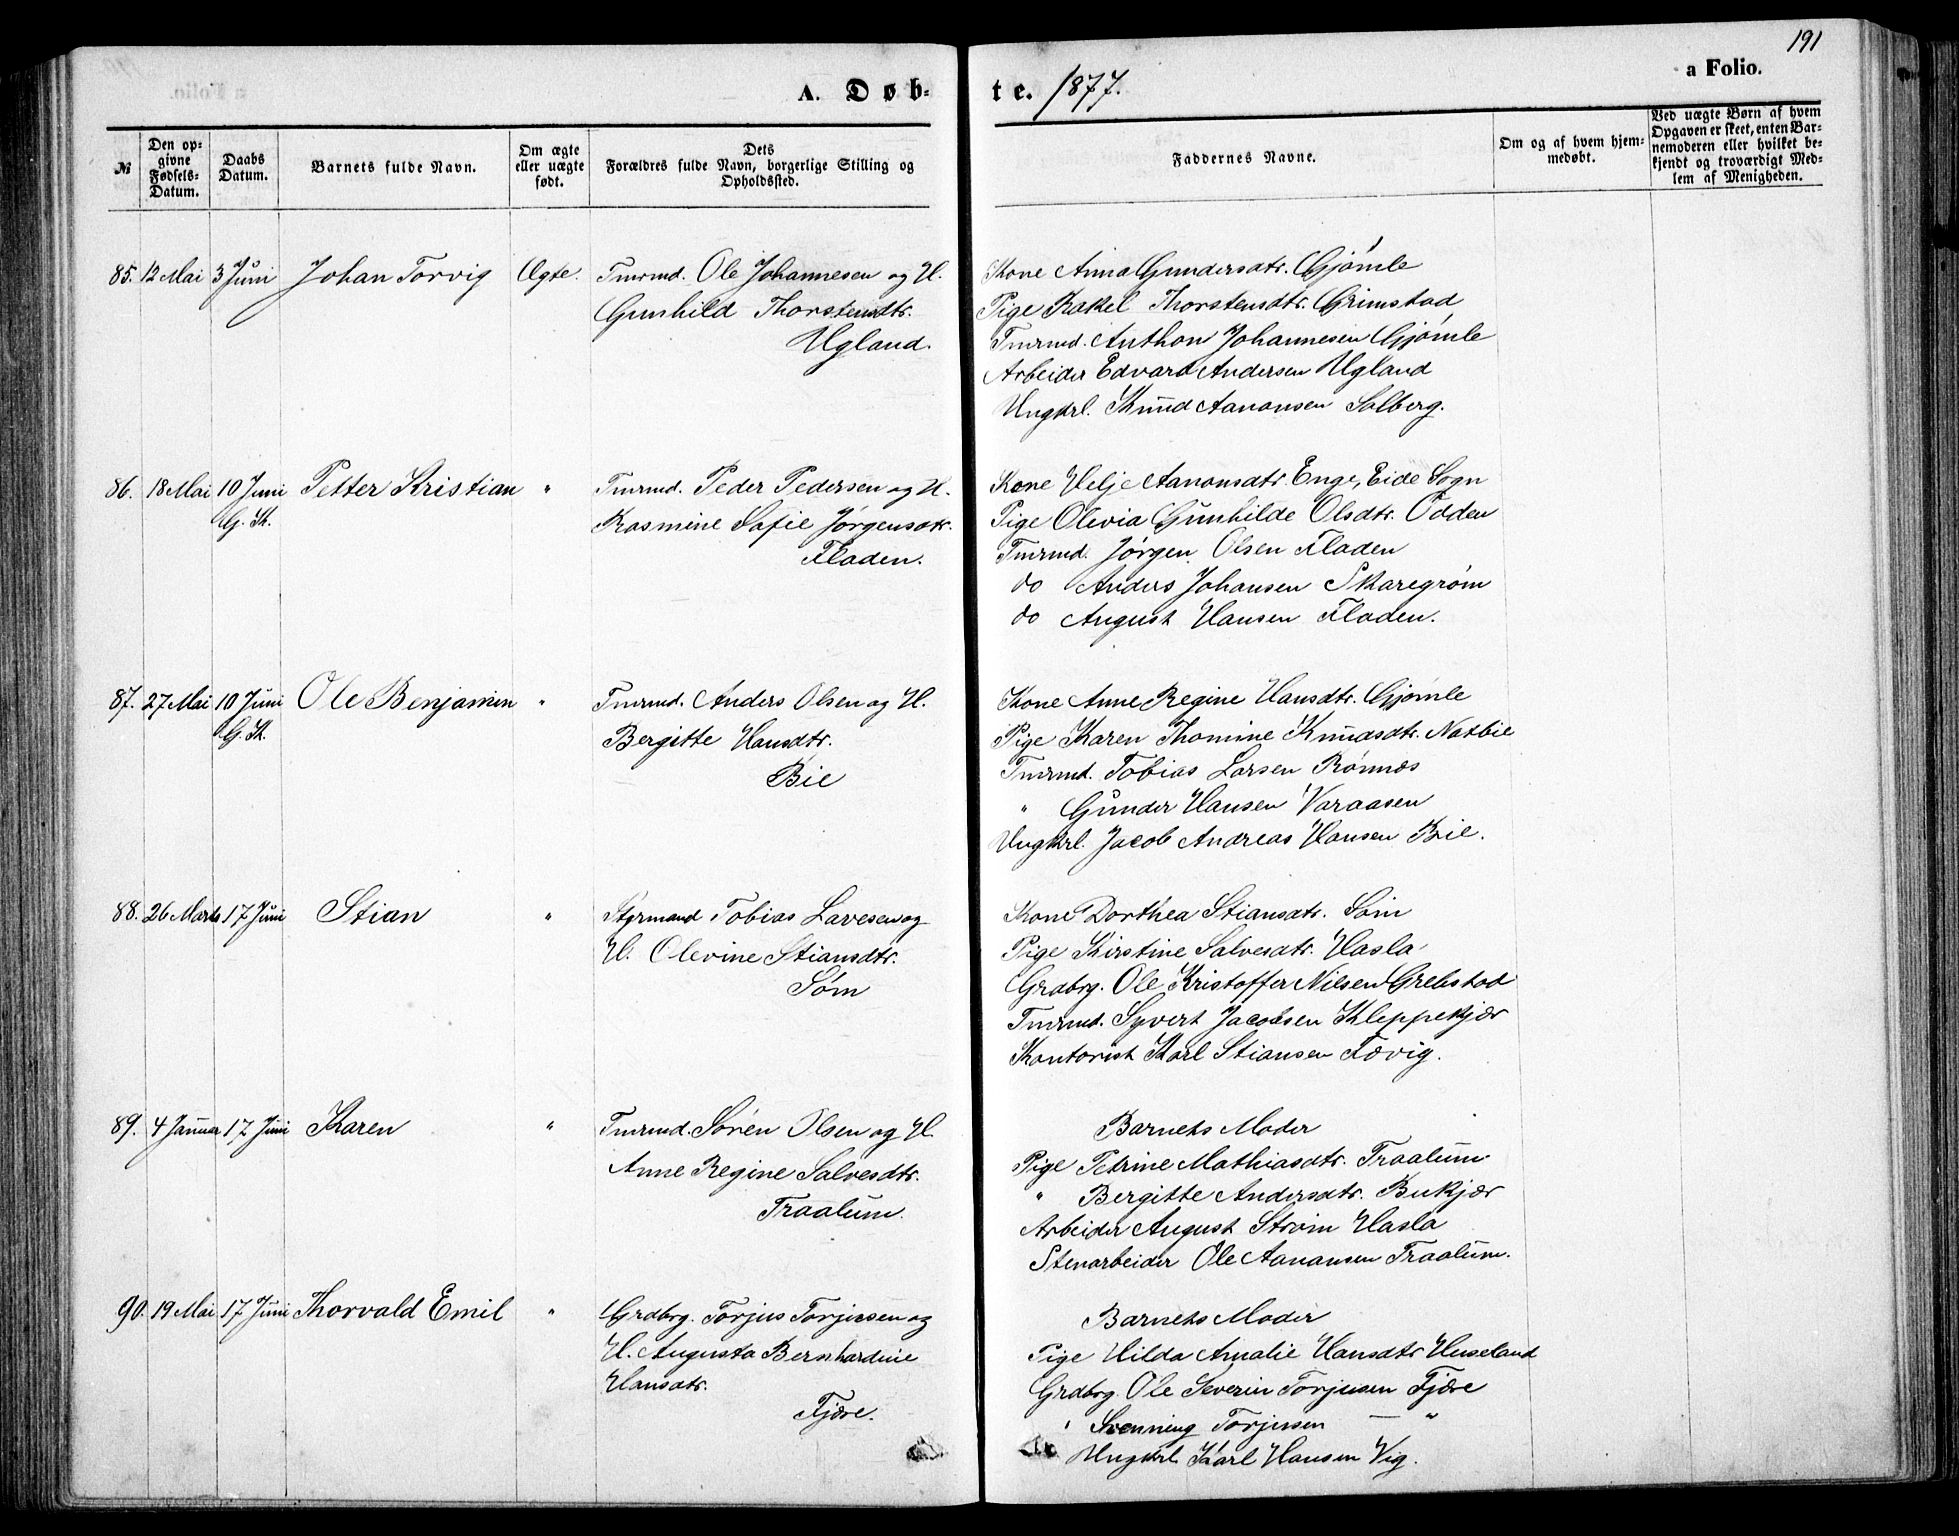 191
a Folio.
A. Døb-
te. 1877.
№
Den op-
givne
Fødsels-
Datum.
Daabs
Datum.
Barnets fulde Navn.
Om ægte
eller uægte
født.
Dets
Forældres fulde Navn, borgerlige Stilling og
Opholdssted.
Faddernes Navne.
Om og af hvem hjem-
medøbt.
Ved uægte Børn af hvem
Opgaven er skeet, enten Bar-
nemoderen eller hvilket be-
kjendt og troværdigt Med-
lem af Menigheden.
85. 12 Mai 3 Juni Johan Torvig Ægte. Tmrmd. Ole Johannesen og H.
Gunhild Thorstensdtr.
Ugland.
Kone Anna Gundersdtr. Gjømle
Pige Rakel Thorstensdtr. Grimstad
Tmrmd. Anthon Johannesen Gjømle
Arbeider Edvard Andersen Ugland
Ungkrl. Knud Aanonsen Solberg.
86. 18 Mai 10 Juni Petter Kristian " Tmrmd. Peder Pedersen og H.
G. K. Rasmine Sofie Jørgensdtr.
Fladen.
Kone Helje Aanonsdtr. Enge, Eide Sogn
Pige Olevia Gunhilde Olsdtr. Odden
Tmrmd. Jørgen Olsen Fladen
do Anders Johansen Skaregrøm
do August Hansen Fladen.
87. 27 Mai 10 Juni Ole Benjamin " Tmrmd. Anders Olsen og H.
G. K. Bergitte Hansdtr.
Bie
Kone Anne Regine Hansdtr. Gjømle
Pige Karen Thomine Knudsdtr. Natbie
Tmrmd. Tobias Larsen Rønnæs
" Gunder Hansen Varaasen
Ungkrl. Jacob Andreas Hansen Bie.
88. 26 Marts 17 Juni Stian " Styrmand Tobias Lavesen og
H. Olevine Stiansdtr.
Søm
Kone Dorthea Stiansdtr. Søm
Pige Kirstine Salvesdtr. Hasla
Grdbrg. Ole Kristoffer Nilsen Grebstad
Tmrmd. Syvert Jacobsen Kleppekjær
Kontorist Karl Stiansen Fævig.
89. 4 Januar 17 Juni Karen " Tmrmd. Søren Olsen og H.
Anne Regine Salvesdtr.
Traalum.
Barnets Moder
Pige Petrine Mathiasdtr. Traalum
" Bergitte Andersdtr. Bukjær
Arbeider August Strøm Hasla
Stenarbeider Ole Aanonsen Traalum.
90. 19 Mai 17 Juni Thorvald Emil " Grdbrg. Torjus Torjussen og
H. Augusta Bernhardine
Hansdtr.
Fjære.
Barnets Moder
Pige Hilda Amalie Hansdtr Heseland
Grdbrg. Ole Severin Torjussen Fjære
" Svenning Torjussen — "
Ungkrl. Karl Hansen Vig.